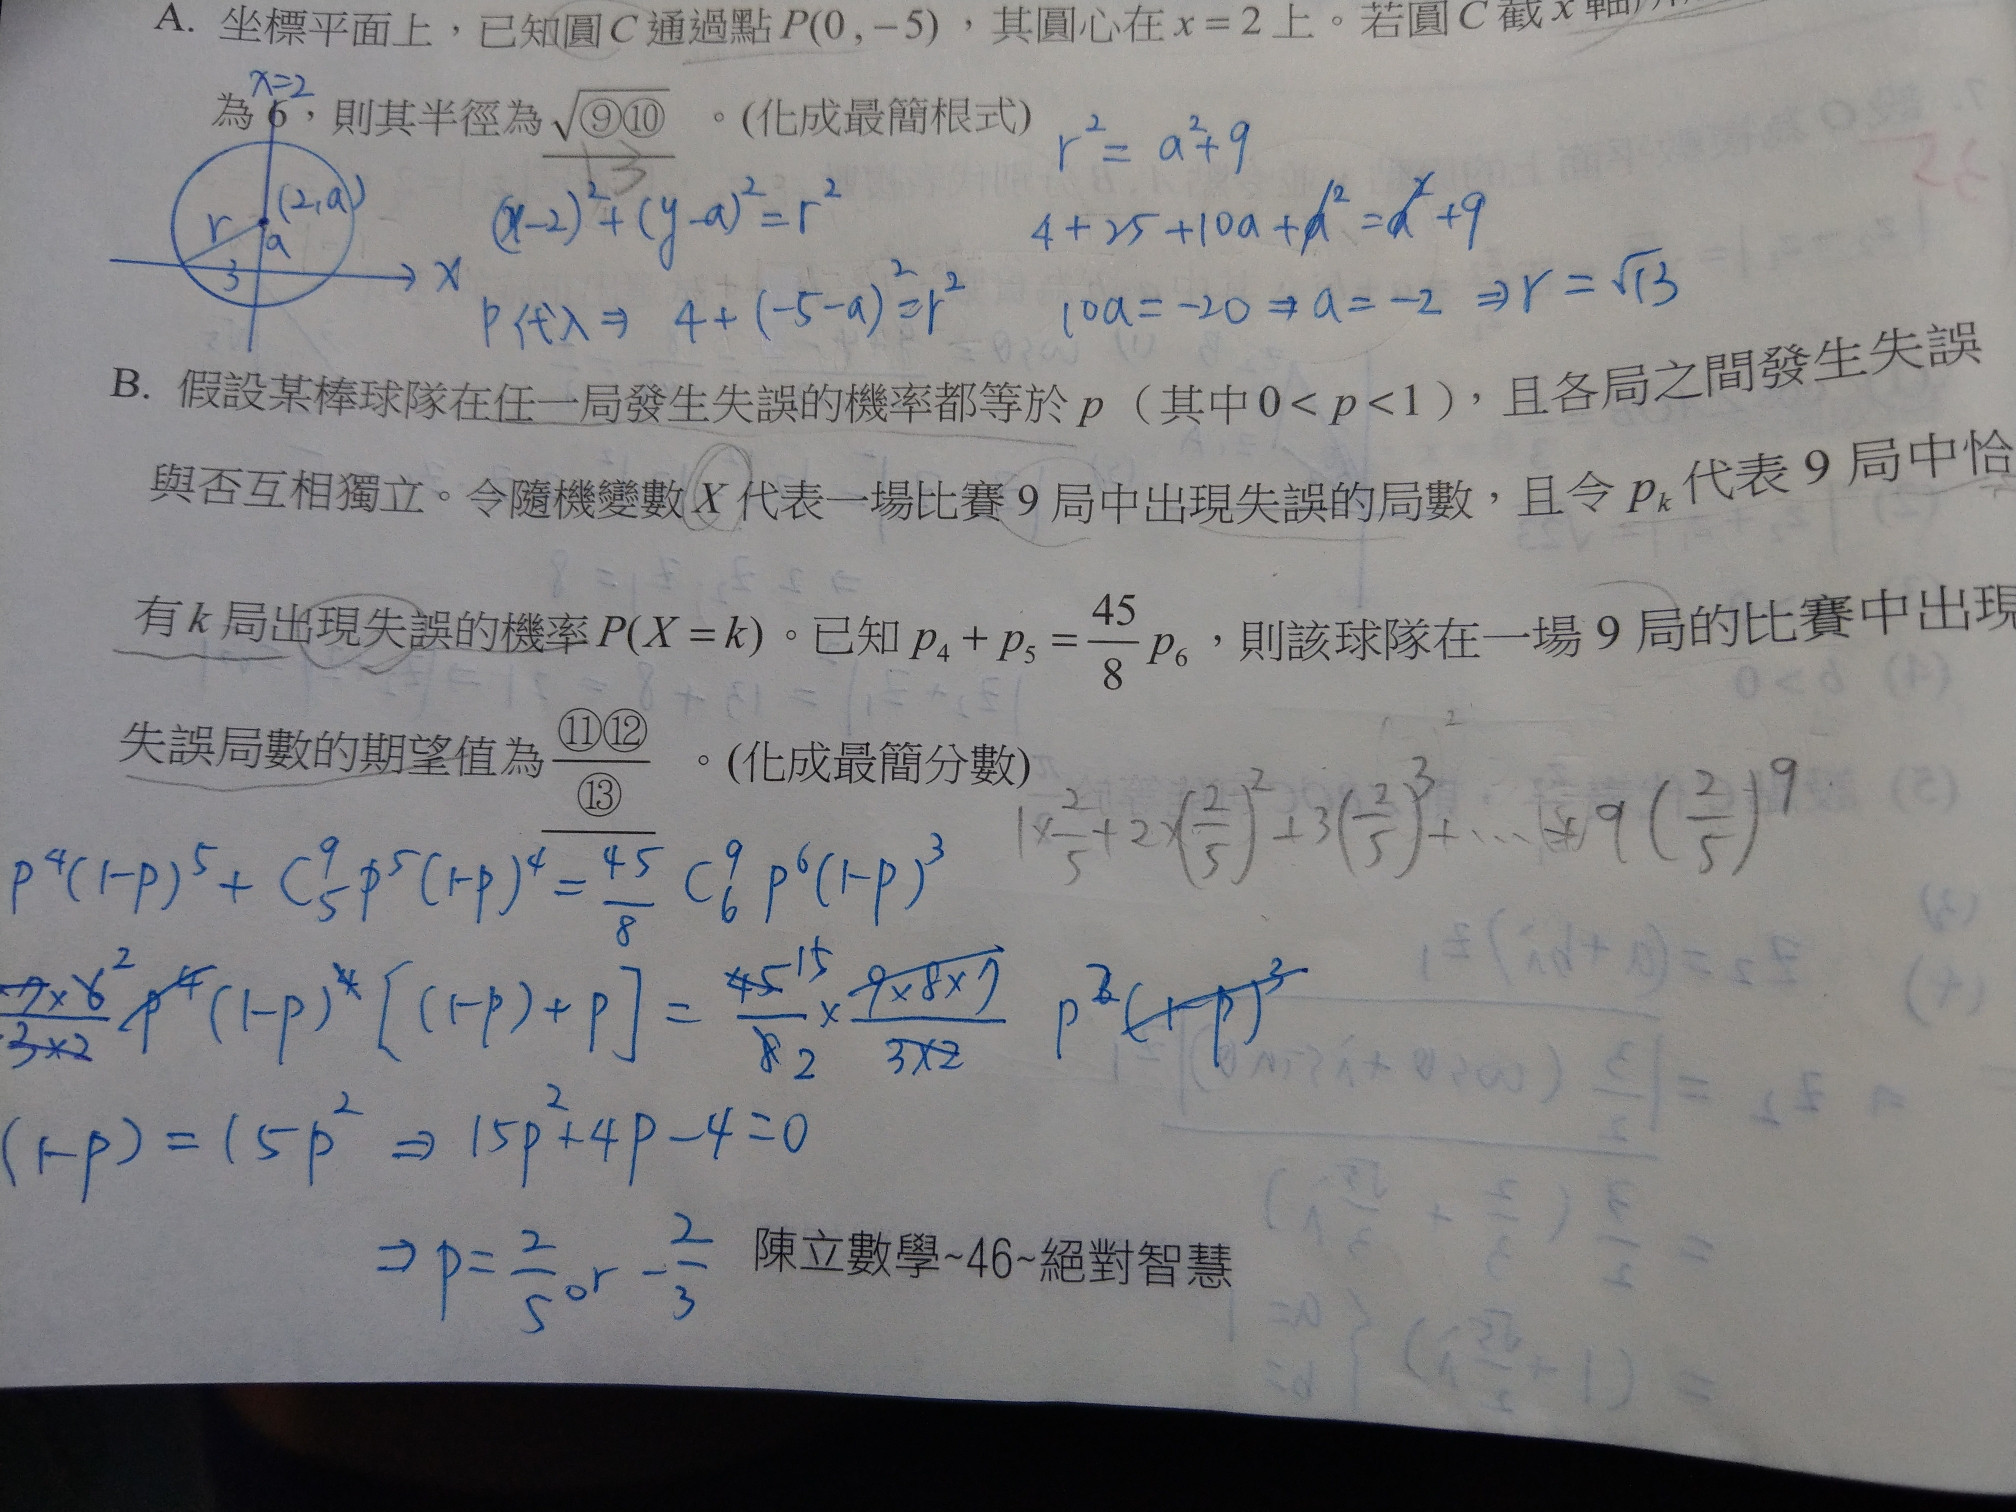 A. 坐標平面上，已知圓C通過點P(0,−5)，其圓心在x=2上。若圓C截x軸
x=2
為6，則其半徑為√⑨⑩。(化成最簡根式)
13
r²=a²+9
(2,a)
r
a
3
x
(x-2)²+(y-a)²=r²
4+25+10a+a²=a²+9
P代入⇒ 4+(-5-a)²=r²
10a=-20⇒a=-2 ⇒r=√13
B. 假設某棒球隊在任一局發生失誤的機率都等於p（其中0<p<1），且各局之間發生失誤
與否互相獨立。令隨機變數X代表一場比賽9局中出現失誤的局數，且令pₖ代表9局中恰
有k局出現失誤的機率P(X=k)。已知p₄+p₅=45/8 p₆，則該球隊在一場9局的比賽中出現
失誤局數的期望值為⑪⑫/⑬。(化成最簡分數)
1×2/5+2×(2/5)²+3(2/5)³+...+9(2/5)⁹
p⁴(1-p)⁵+C⁹₅p⁵(1-p)⁴=45/8 C⁹₆p⁶(1-p)³
p⁴(1-p)⁴[(1-p)+p]=45/8×9×8×7/3×2 p⁶(1-p)³
(1-p)=15p² ⇒ 15p²+4p-4=0
⇒p=2/5 or -2/3
陳立數學~46~絕對智慧